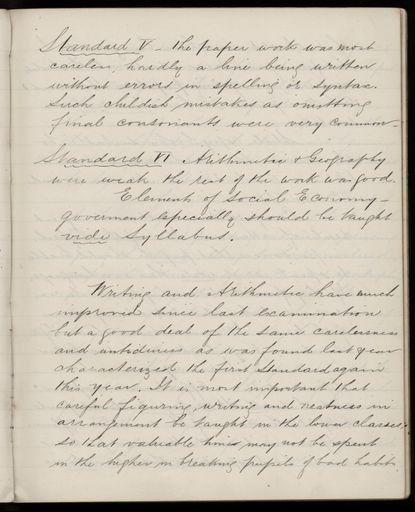 Standard V - the paper work was most
careless, hardly a line being written
without errors in spelling or syntax.
Such childish mistakes as omitting
final consonants were very common -
Standard VI Arithmetic & Geography
were weak the rest of the work was good.
Elements of Social Economy -
goverment especially should be taught
vide Syllabus.
Writing and Arithmetic have much
improved since last examination
but a good deal of the same carelessness
and untidiness as was found last year
characterized the first Standard again
this year. It is most important that
careful figuring, writing and neatness in
arrangement be taught in the lower classes,
so that valuable time may not be spent
in the higher in breaking pupils of bad habits.